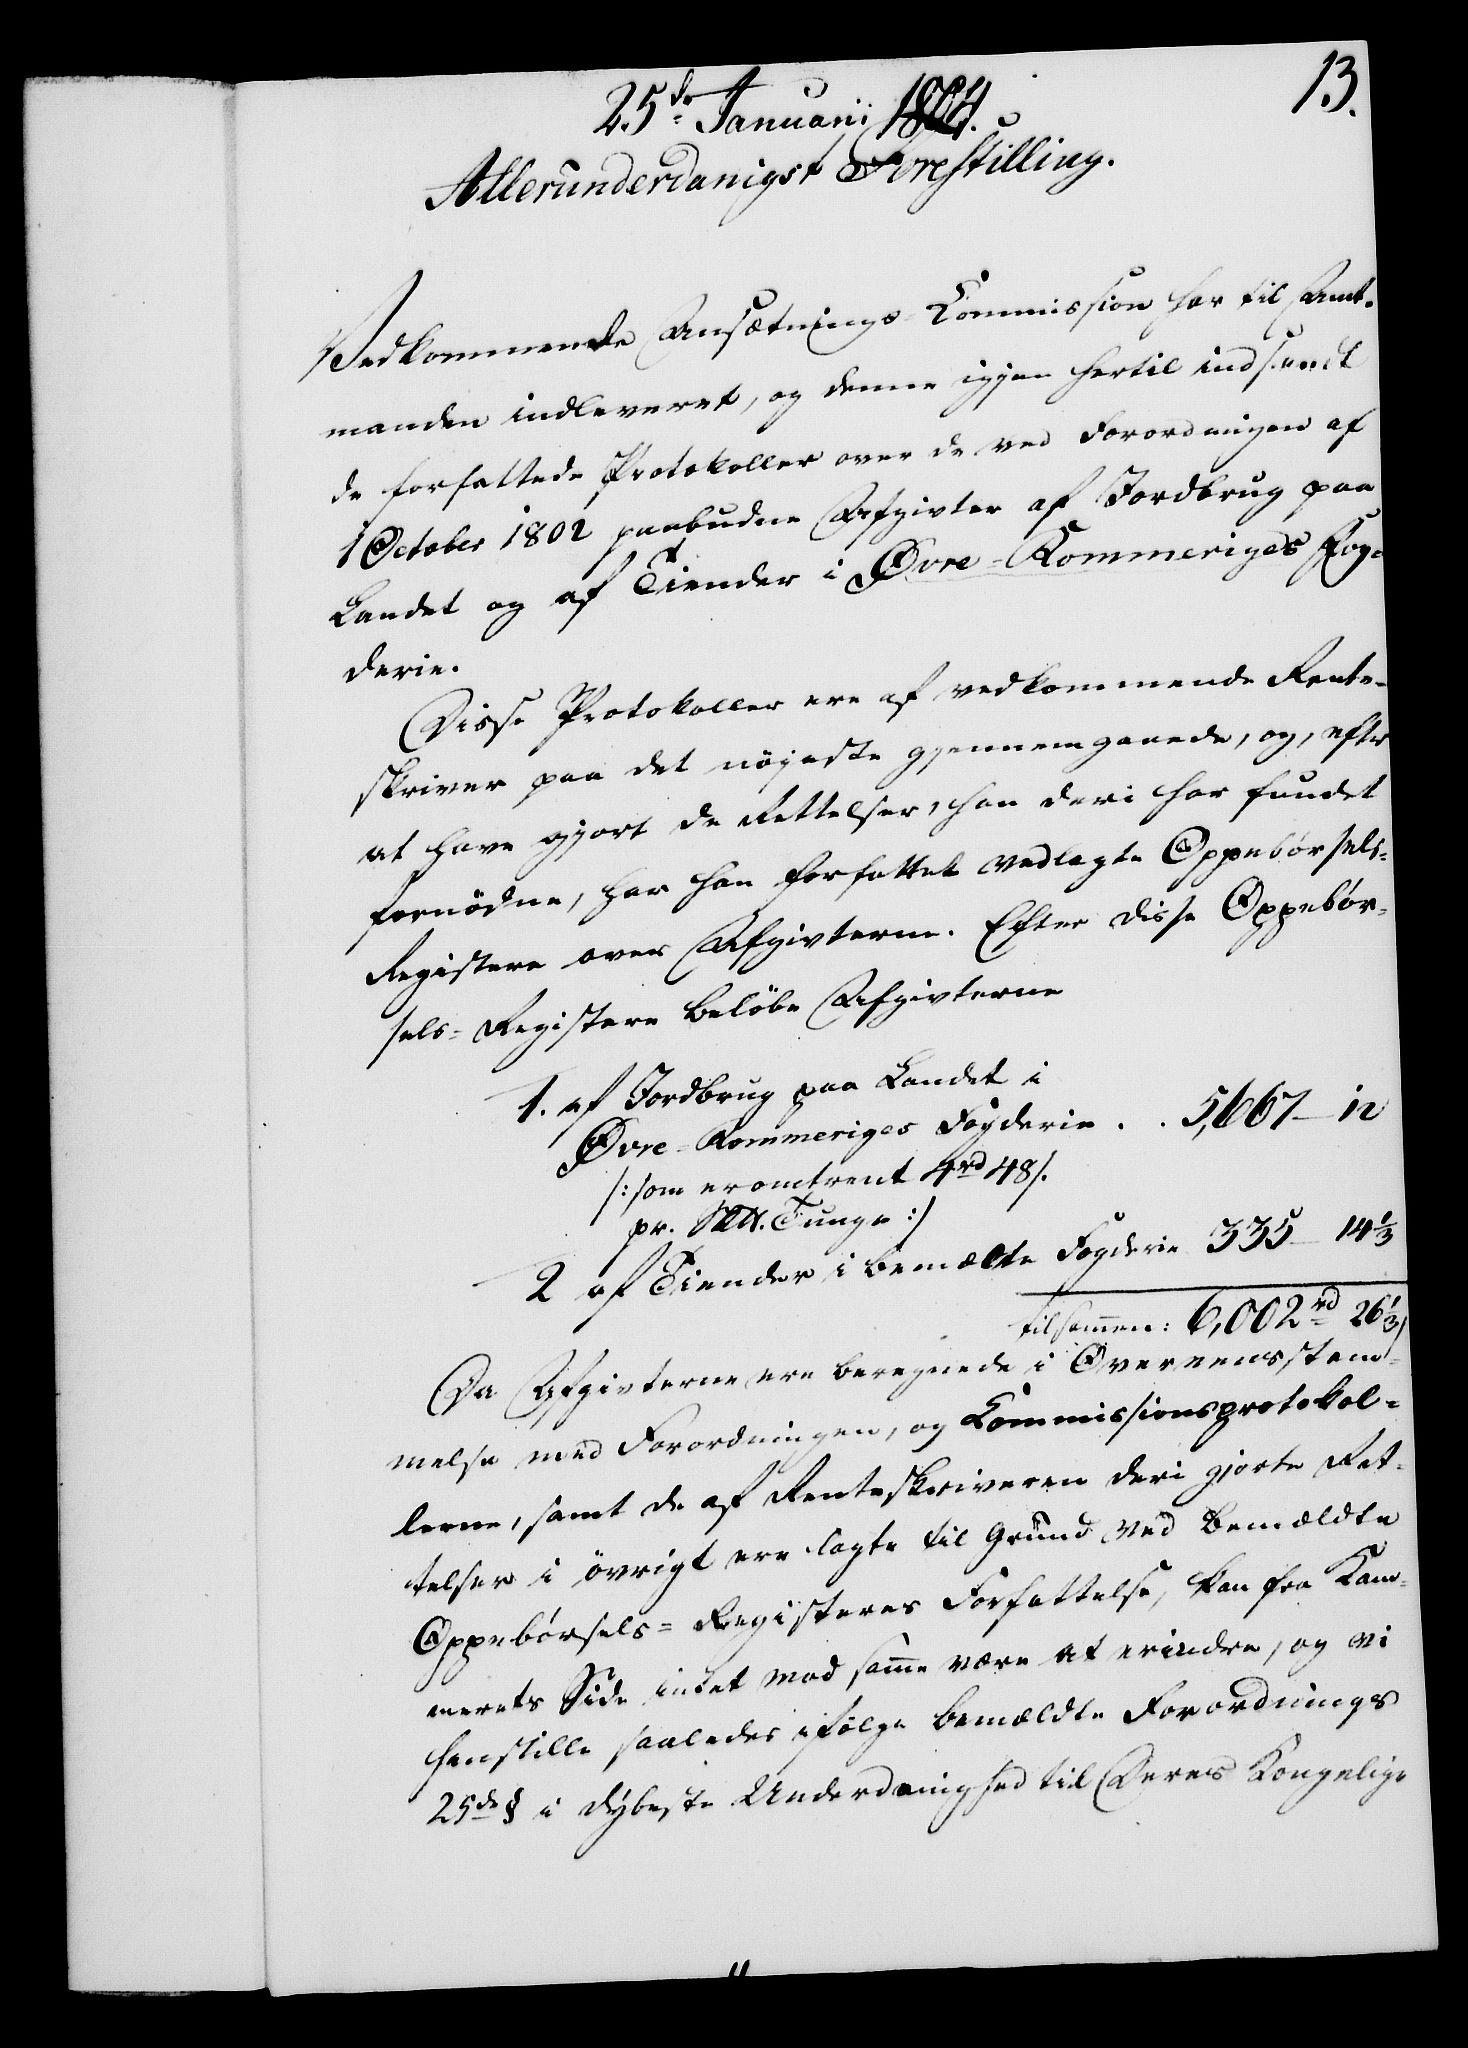 13.
25de Januarii 1804.
Allerunderdanigst Forestilling.
Vedkommende Ansætnings-Commission har til Amt-
manden indleveret, og denne igjen hertil indsendt
de forfattede Protokoller over de ved Forordningen af
1 October 1802 paabudne Afgivter af Jordbrug paa
Landet og af Tiender i Øvre-Rommeriges Fog-
derie.
Disse Protokoller ere af vedkommende Rente-
skriver paa det nöjeste gjennemgaaede, og, efter
at have gjort de Rettelser, han deri har fundet
fornödne, har han forfattet vedlagte Oppebörsels-
Registere over Afgivterne. Efter disse Oppebör-
sels-Registere belöbe Afgivterne
1. af Jordbrug paa Landet i
Øvre-Rommeriges Fogderie . . 5,667 – 12
/: som er omtrent 4rd 48 /.
pr. Tunge :/
2 af Tiender i bemældte Fogderie 335 – 14 1/3
tilsammen: 6,002rd 26 1/3
Da Afgivterne ere beregnede i Overeensstem-
melse med Forordningen, og Commissionsprotokol-
lerne, samt de af Renteskriveren deri gjorte Ret-
telser i övrigt ere lagte til Grund ved bemældte
Oppebörsels-Registeres Forfattelse, kan fra Kam-
merets Side intet mod samme være at erindre, og vi
henstille saaledes ifölge bemældte Forordnings
25de § i dybeste Underdanighed til Deres Kongelige